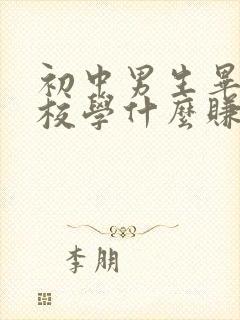 初中男生畢
校學什麼賺
李朋